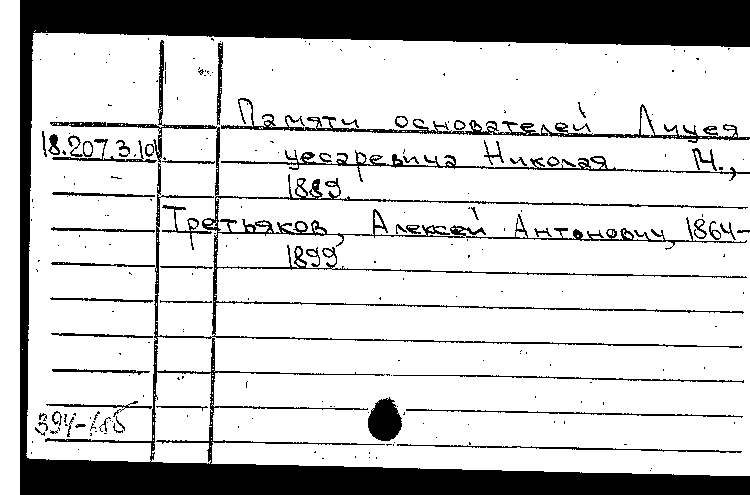 Памяти основателей Лицея
18.207.3.101 цесаревича Николая. М.,
1889.
Третьяков, Алексей Антонович, 1864-
1899.
394-185